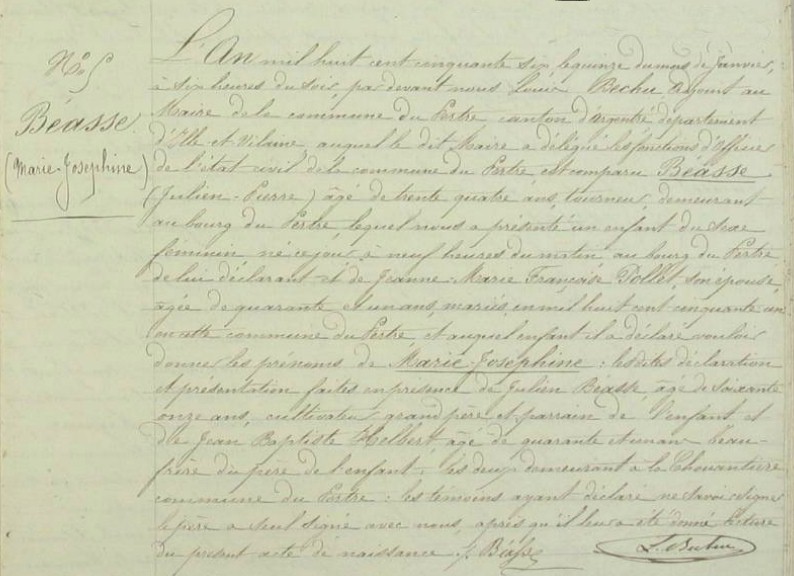 N° 5
Béasse
(Marie-Josephine)
L'An mil huit cent cinquante six le quinze du mois de janvier,
à six heures du soir, par devant nous Louis Bechu adjoint au
Maire de la commune du Pertre canton d'argentré département
d'Ille et Vilaine auquel le dit Maire a délégué les fonctions d'officier
de l'état civil de la commune du Pertre est comparu Béasse
(Julien-Pierre) âgé de trente quatre ans, tourneur, demeurant
au bourg du Pertre, lequel nous a présenté un enfant du sexe
féminin né ce jour à neuf heures du matin, au bourg du Pertre
de lui déclarant et de Jeanne-Marie Françoise Dollet, son épouse,
âgée de quarante et un ans, mariés en mil huit cent cinquante un
en cette commune du Pertre et auquel enfant il a déclaré vouloir
donner les prénoms de Marie-Josephine : les dites déclaration
et présentation faites en présence de Julien Béasse âgé de soixante
onze ans, cultivateur, grand père et parrain de l'enfant et
de Jean Baptiste Helbert âgé de quarante et un ans beau-
frère du père de l'enfant, les deux demeurant à la Chouantière
commune du Pertre : les témoins ayant déclaré ne savoir signer
le père a seul signé avec nous, après qu'il leur a été donné lecture
du présent acte de naissance J. Béasse